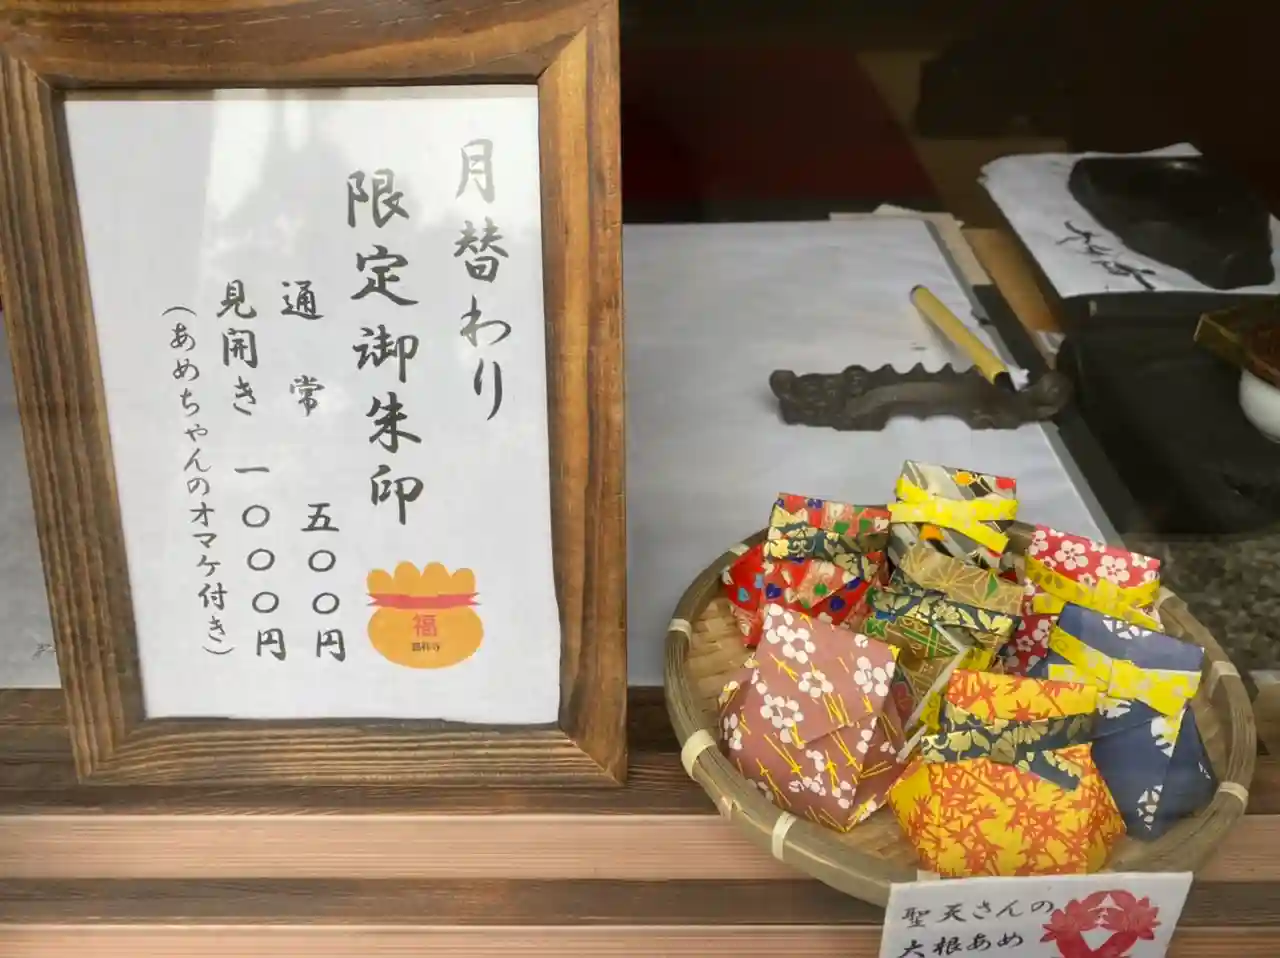 月替わり
限定御朱印
通常 五〇〇円
見開き 一〇〇〇円
（あめちゃんのオマケ付き）
福
聖天さんの
大根あめ